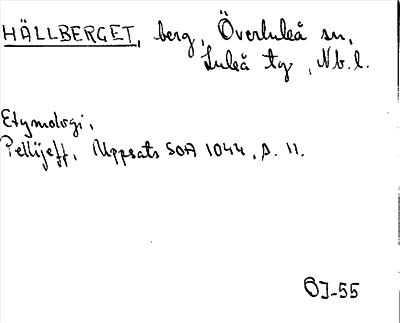 HÄLLBERGET, berg, Överluleå sn,
Luleå tg, Nb. l.
Etymologi,
Pellijeff, Uppsats SOA 1044, s. 11.
ÖJ-55